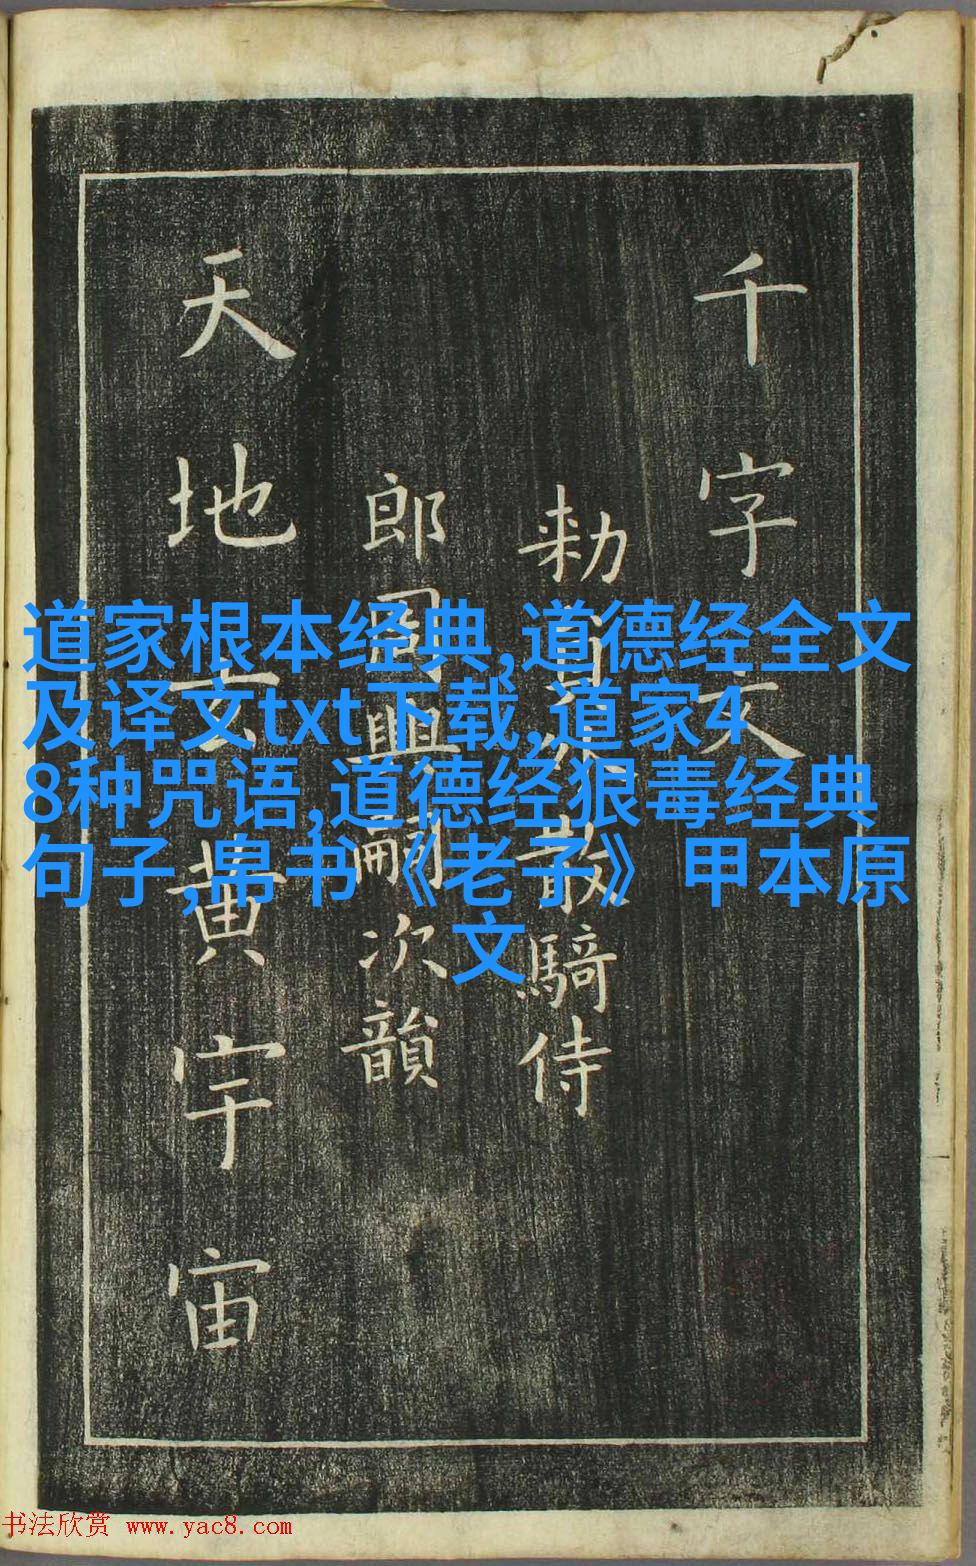 千字文
勑員外散騎侍
郎周興嗣次韻
天地玄黄宇宙
道家根本经典,道德经全文
及译文txt下载,道家4
8种咒语,道德经狠毒经典
句子,帛书《老子》甲本原
文
书法欣赏 www.yac8.com